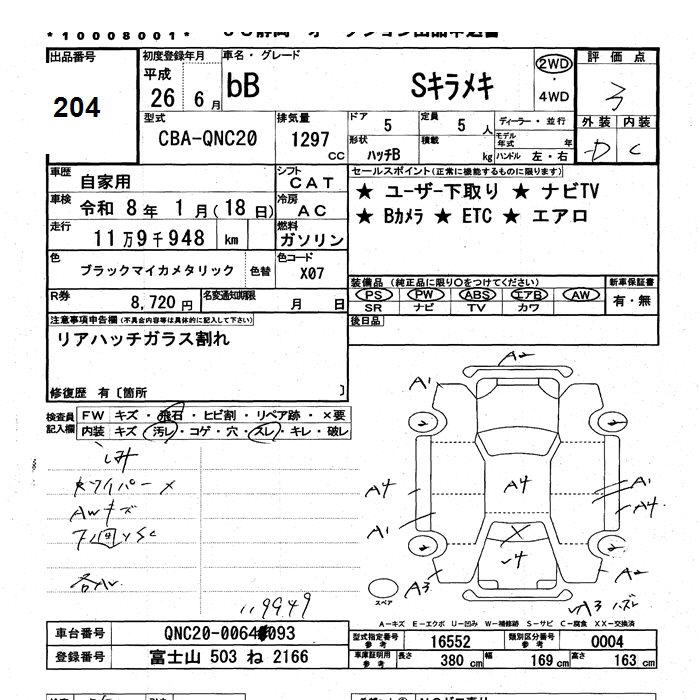 *10008001*
出品番号
204
初度登録年月
平成
26 6月
車名・グレード
bB Sキラメキ
2WD
・
4WD
評価点
3
外装 内装
D C
型式
CBA-QNC20
排気量
1297
CC
ドア
5
定員
5 人
形状
ハッチB
積載
kg
ディーラー・並行
モデル年式 年
ハンドル 左・右
車歴
自家用
シフト
CAT
車検
令和 8年 1月(18日)
冷房
AC
走行
11万9千948 km
燃料
ガソリン
色
ブラックマイカメタリック
色替
色コード
X07
R券
8,720円
名変通知期限
月 日
セールスポイント(正常に機能するものに限ります)
★ ユーザー下取り ★ ナビTV
★ Bカメラ ★ ETC ★ エアロ
装備品 (純正品に限り○をつけてください)
新車保証書
PS PW ABS エアB AW
SR ナビ TV カワ
有・無
後日品
注意事項申告欄(不具合内容等は具体的に記入して下さい)
リアハッチガラス割れ
修復歴 有〔箇所 〕
検査員
記入欄
FW キズ・飛石・ヒビ割・リペア跡・×要
内装 キズ・汚レ・コゲ・穴・スレ・キレ・破レ
シミ
ワイパー ×
AWキズ
119949
A2
A1
2
2
A4
A4
A1
A4
A1
×
4
2
2
A3
A2
A3 ハズレ
スペア
A－キズ E－エクボ U－凹み W－補修跡 S－サビ C－腐食 XX－交換済
車台番号
QNC20-0064093
登録番号
富士山 503 ね 2166
型式指定番号
参考
16552
類別区分番号
参考
0004
車庫証明用
参考
長さ
380 cm
幅
169 cm
高さ
163 cm